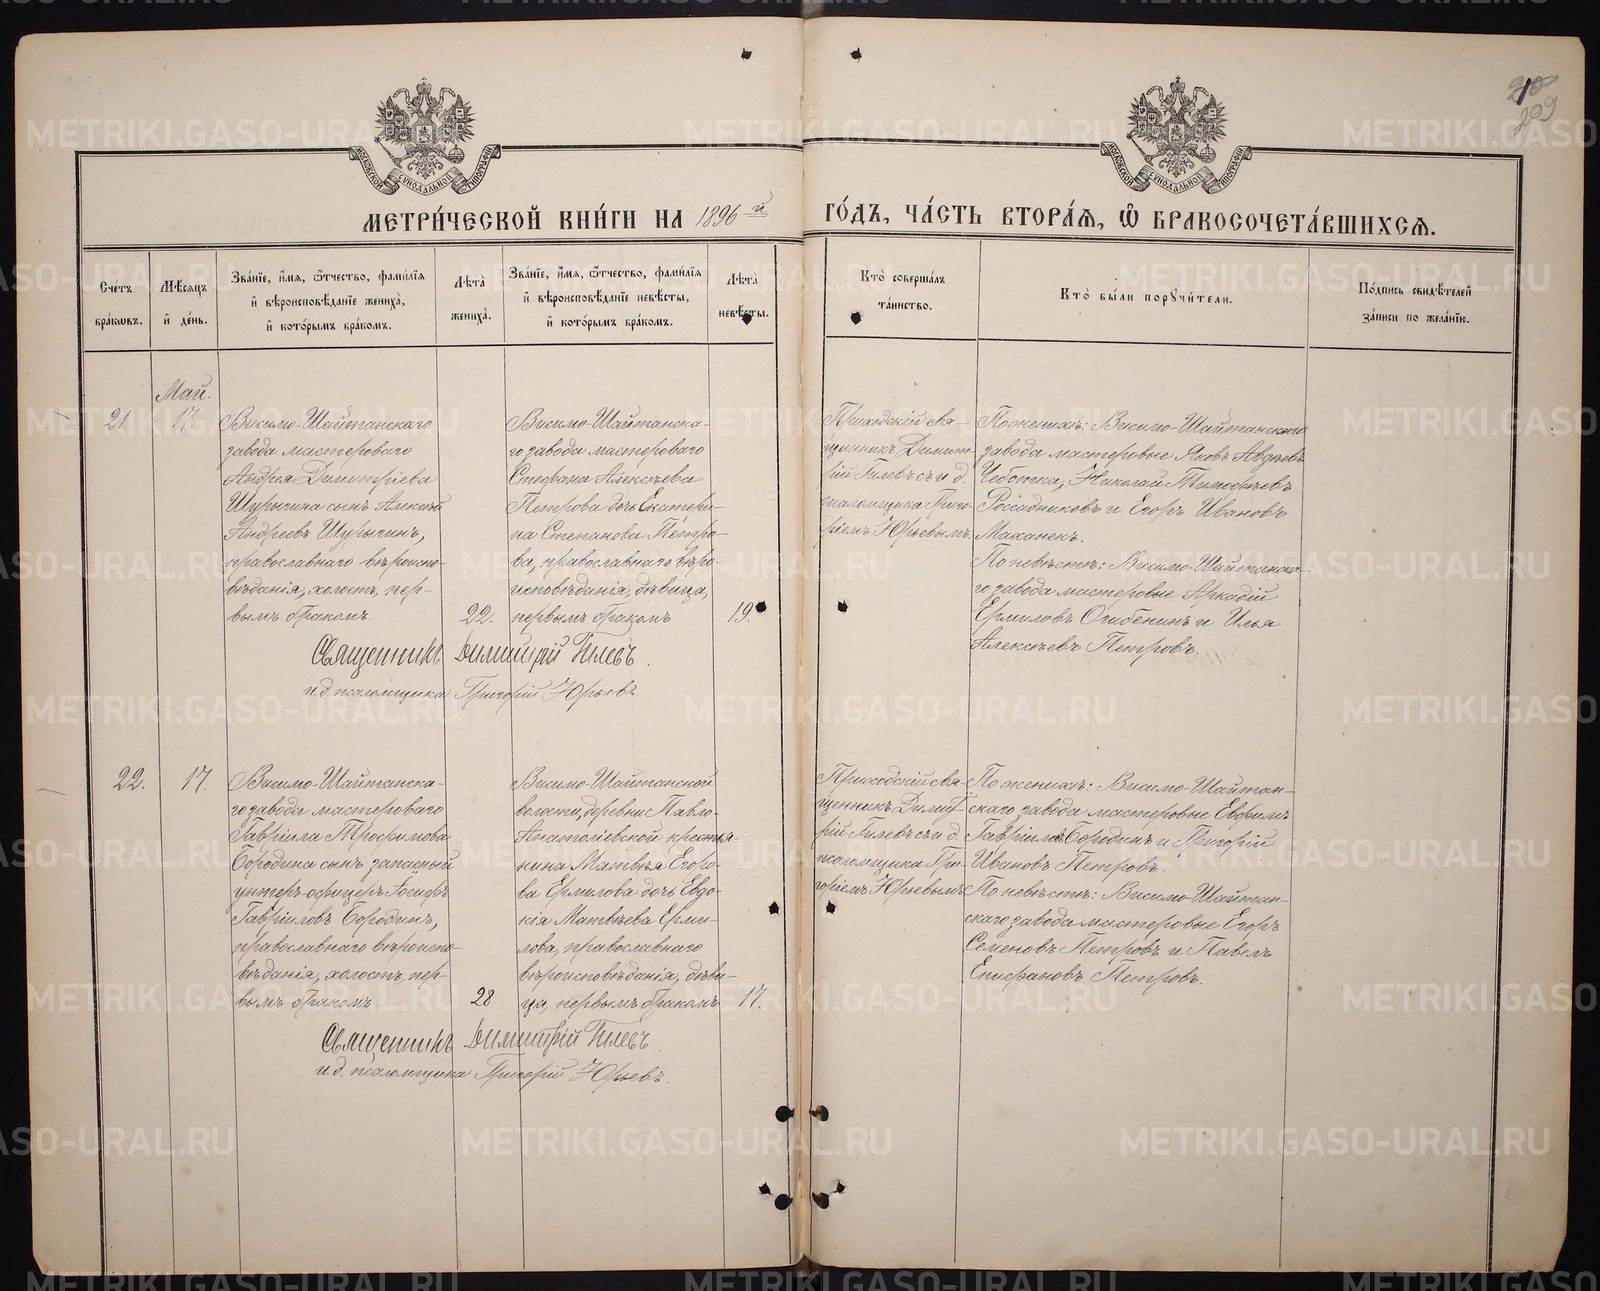 209
МЕТРИ́ЧЕСКОЙ КНИ́ГИ НА 1896-й
ГО́ДЪ, ЧА́СТЬ ВТОРА́Ѧ, Ѡ҆ БРАКОСОЧЕТА́ВШИХСѦ.
Сче́тъ
бра́кѡвъ.
Мѣ́сяцъ
и҆ де́нь.
Зва́нїе, и҆́мѧ, ѻ҆́тчество, фами́лїѧ
и҆ вѣроисповѣ́данїе жениха̀,
и҆ кото́рымъ бра́комъ.
Лѣ́та̀
жениха̀.
Зва́нїе, и҆́мѧ, ѻ҆́тчество, фами́лїѧ
и҆ вѣроисповѣ́данїе невѣ́сты,
и҆ кото́рымъ бра́комъ.
Лѣ́та̀
невѣ́сты.
Кто̀ соверша́лъ
та́инство.
Кто̀ бы́ли порꙋчи́тели.
По́дпись свидѣ́телей
за́писи по жела́нїю.
Май.
21.
17.
Висимо-Шайтанскаго
завода мастероваго
Андрея Димитріева
Шурыгина сынъ Алексѣй
Андреевъ Шурыгинъ,
православнаго вѣроиспо-
вѣданія, холостъ, пер-
вымъ бракомъ.
22.
Висимо-Шайтанска-
го завода мастероваго
Стефана Алексѣева
Петрова дочь Екатери-
на Степанова Петро-
ва, православнаго вѣро-
исповѣданія, дѣвица,
первымъ бракомъ
19.
Приходскій свя-
щенникъ Димит-
рій Гилевъ съ и. д.
псаломщика Григо-
ріемъ Юрьевымъ.
По женихѣ: Висимо-Шайтанскаго
завода мастеровые Яковъ Авдѣевъ
Чеботка, Николай Тимофѣевъ
Россадниковъ и Егоръ Ивановъ
Маханек.
По невѣстѣ: Висимо-Шайтанска-
го завода мастеровые Аркадій
Ермиловъ Огибенинъ и Илья
Алексѣевъ Петровъ.
Священникъ Димитрій Гилевъ.
и. д. псаломщика Григорій Юрьевъ
22.
17.
Висимо-Шайтанска-
го завода мастероваго
Гавріила Трофимова
Бородина сынъ запасный
унтеръ-офицеръ Іосифъ
Гавріиловъ Бородинъ,
православнаго вѣроиспо-
вѣданія, холостъ, пер-
вымъ бракомъ
28
Висимо-Шайтанской
волости, деревни Павло-
Анатоліевской крестья-
нина Матвѣя Егоро-
ва Ермилова дочь Евдо-
кія Матвѣева Ерми-
лова, православнаго
вѣроисповѣданія, дѣви-
ца, первымъ бракомъ
17.
Приходскій свя-
щенникъ Димит-
рій Гилевъ съ и. д.
псаломщика Гри-
горіемъ Юрьевымъ
По женихѣ: Висимо-Шайтан-
скаго завода мастеровые Евфимъ
Гавріиловъ Бородинъ и Григорій
Ивановъ Петровъ.
По невѣстѣ: Висимо-Шайтан-
скаго завода мастеровые Егоръ
Семеновъ Петровъ и Павелъ
Епифановъ Петровъ.
Священникъ Димитрій Гилевъ.
и. д. псаломщика Григорій Юрьевъ.